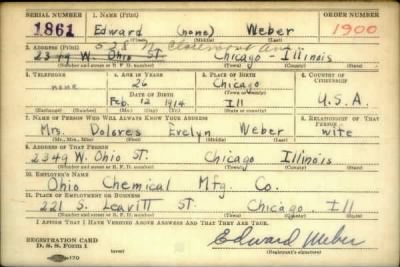 SERIAL NUMBER 1. NAME (Print) ORDER NUMBER
1861 Edward (none) Weber 1900
(First) (Middle) (Last)
2. ADDRESS (Print) 528 N Claremont Ave
2349 W. Ohio St. Chicago - Illinois
(Number and street or R. F. D. number) (Town) (County) (State)
3. TELEPHONE 4. AGE IN YEARS 5. PLACE OF BIRTH 6. COUNTRY OF CITIZENSHIP
NONE 26 Chicago
DATE OF BIRTH (Town or county)
Feb. 12 1914 Ill U.S.A.
(Exchange) (Number) (Mo.) (Day) (Yr.) (State or country)
7. NAME OF PERSON WHO WILL ALWAYS KNOW YOUR ADDRESS 8. RELATIONSHIP OF THAT PERSON
Mrs. Dolores Evelyn Weber wife
(Mr., Mrs., Miss) (First) (Middle) (Last)
9. ADDRESS OF THAT PERSON
2349 W. Ohio St. Chicago Illinois
(Number and street or R. F. D. number) (Town) (County) (State)
10. EMPLOYER'S NAME
Ohio Chemical Mfg. Co.
11. PLACE OF EMPLOYMENT OR BUSINESS
221 S. Leavitt St Chicago. Ill
(Number and street or R. F. D. number) (Town) (County) (State)
I AFFIRM THAT I HAVE VERIFIED ABOVE ANSWERS AND THAT THEY ARE TRUE.
REGISTRATION CARD
D. S. S. Form 1 (over) Edward Weber
(Registrant's signature)